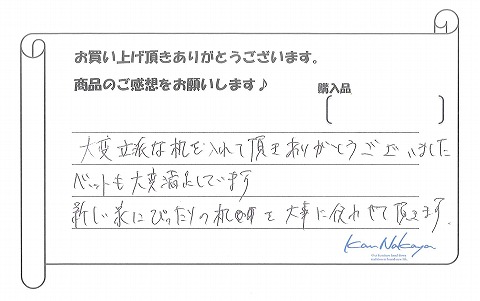 お買い上げ頂きありがとうございます。
商品のご感想をお願いします♪
購入品
大変立派な机を入れて頂きありがとうございました
ベットも大変満足しています
新しい家にぴったりの机を大事に使わせて頂きます。
Kan Nakaya